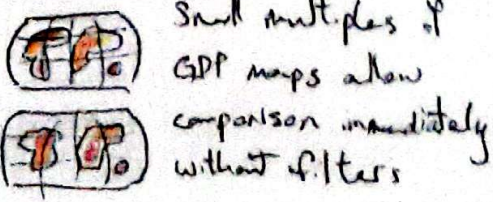 Small multiples of
GDP maps allow
comparison immediately
without filters